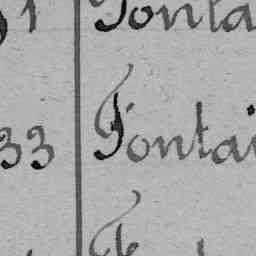 1 Fonta
33 Fontai